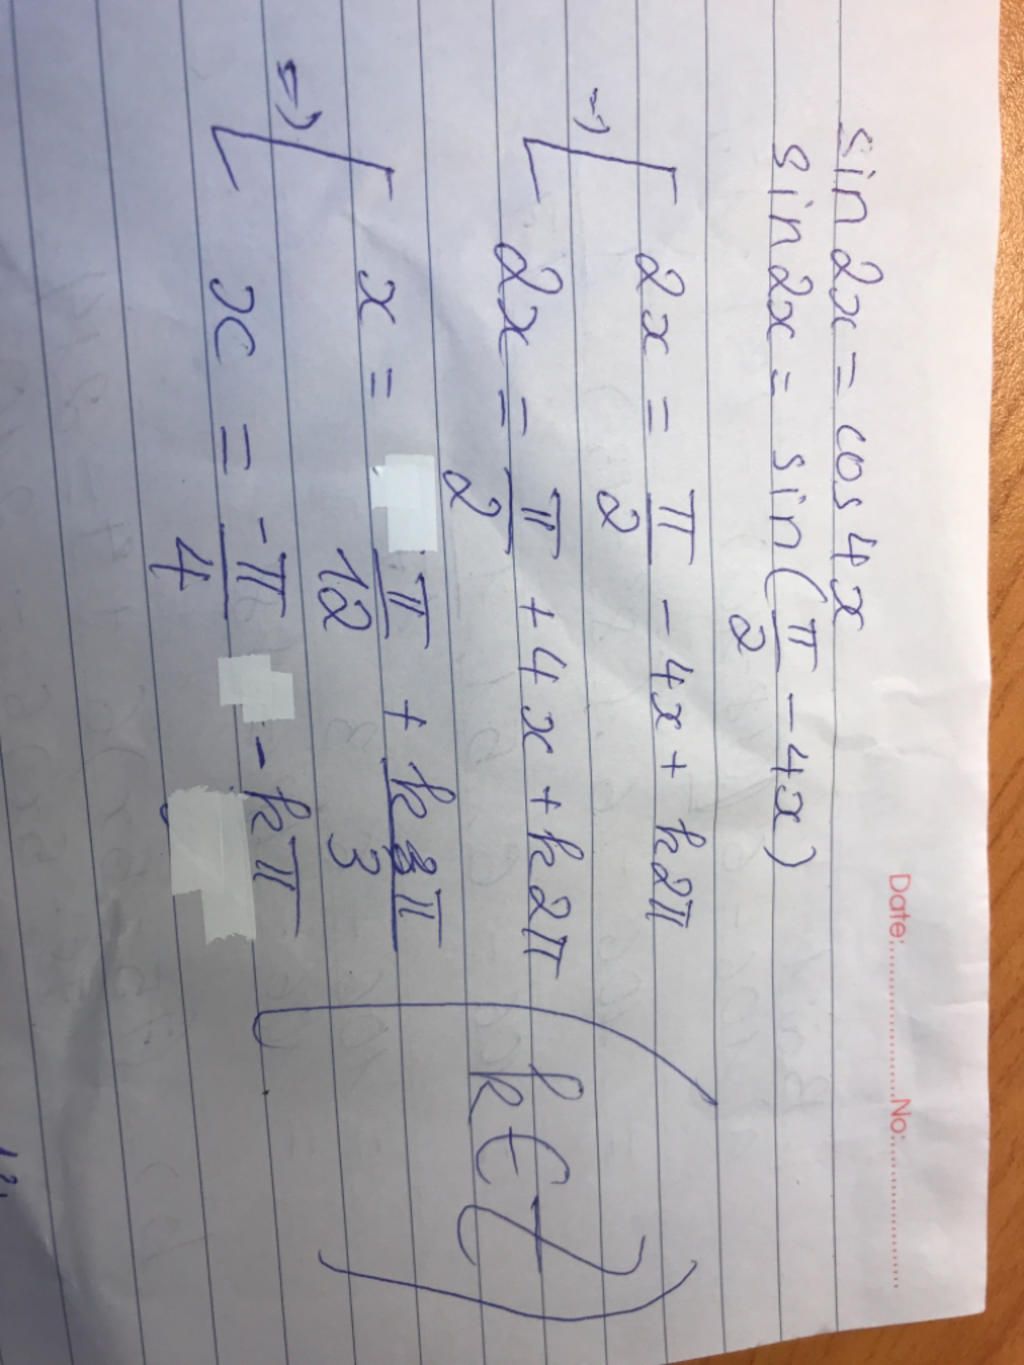 Date:....................No:....................
sin2x = cos4x
sin2x = sin(π/2 - 4x)
=> [ 2x = π/2 - 4x + k2π
[ 2x = π/2 + 4x + k2π
(k∈Z)
=> [ x = π/12 + kπ/3
[ x = -π/4 - kπ